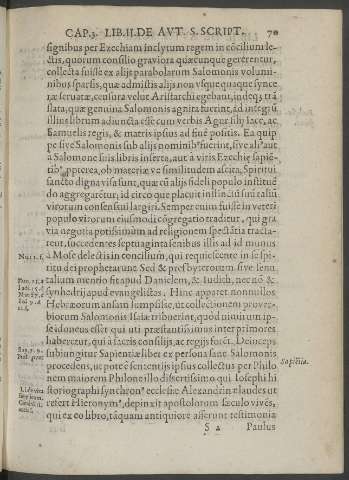 CAP.3. LIB.II.DE AVT. S. SCRIPT. 70
signibus per Ezechiam inclytum regem in cōcilium le-
ctis, quorum consilio graviora quæcunque gererentur,
collecta fuisse ex alijs parabolarum Salomonis volumi-
nibus sparsis, quæ admistis alijs non usque quaque synce
ræ servatæ, censura velut Aristarchi egebant, indeq; tra
slata, quæ genuina Salomonis agnita fuerint, ad integrū
illius librum adiuncta esse cum verbis Agur filij Iace, ac
Samuelis regis, & matris ipsius ad finē positis. Ea quip
pe sive Salomonis sub alijs nominib⁹ fuerint, sive ali⁹ aut
à Salomone suis libris inserta, aut à viris Ezechiæ sapiē-
tib⁹, ppterea, ob materiæ vel similitudem ascita, Spiritui
sancto digna visa sunt, quæ cū alijs fideli populo instituē
do aggregarētur, id circo que placuit instinctū sui taliū
virorum consensui largiri. Semper enim fuisse in veteri
populo virorum eiusmodi cōgregatio traditur, qui gra
via negotia potissimùm ad religionem spectātia tracta-
rent, succedentes septuaginta senibus illis ad id munus
Nu. 11. c. à Mose delectis in concilium, qui requiescente in se spi-
ritu dei prophetarunt Sed & presbyterorum sive senu
talium mentio fit apud Danielem, & Iudich, nec nō &
synhedrij apud evangelistas. Hinc apparet nonnullos
Hebræorum ansam sumpsisse, ut collectionem prover-
biorum Salomonis Isaiæ tribuerint, quòd unum ium ip-
se idoneus esset qui uti præstantissimus inter primores
haberetur, qui à sacris consilijs, ac regijs foret. Deinceps
subiungitur Sapientiæ liber ex persona sane Salomonis
procedens, ut pote è sententijs ipsius collectus per Philo
nem maiorem Philone illo dissertissimo qui Iosephi hi
storiographi synchron⁹ ecclesiæ Alexandrinæ laudes ut
refert Hieronym⁹, depinxit apostolorum sæculo vivēs,
qui ex eo libro, tāquam antiquiore asserunt testimonia
Sapiētia.
S 2 Paulus